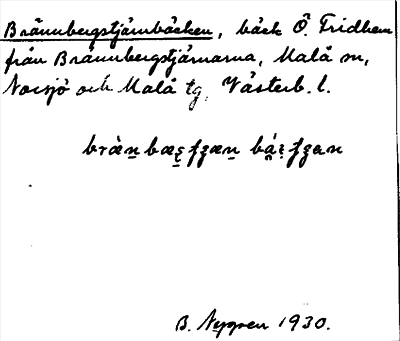 Brännbergstjärnbäcken, bäck Ö. Fridhem
från Brännbergstjärnarna, Malå sn,
Norsjö och Malå tg, Västerb. l.
B. Nygren 1930.